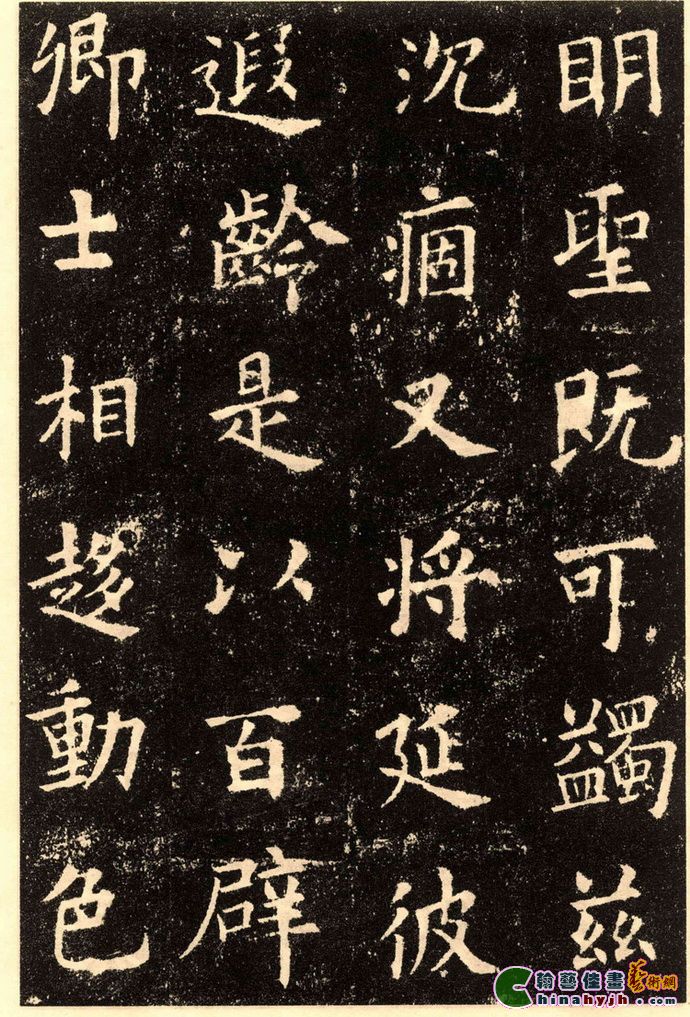 明聖既可蠲兹
沉痼又将延彼
遐齡是以百辟
卿士相趍動色
翰藝佳畫藝術網
Chinahyjh.com